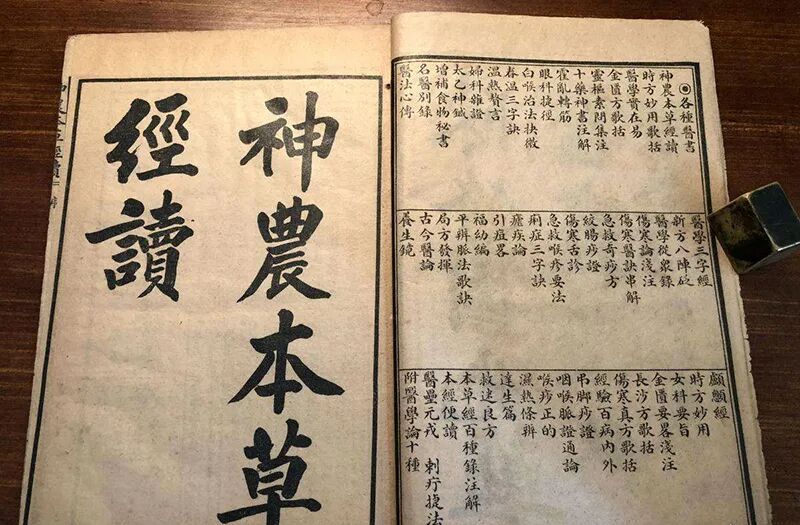 各種醫書
神農本草經讀
時方妙用歌括
醫學實在易
金匱方歌括
靈樞素問集注
十藥神書注解
霍亂轉筋
眼科捷徑
白喉治法抉微
春溫三字訣
溫熱贅言
婦科雜證
太乙神鍼
增補食物秘書
名醫別錄
醫法心傳
醫學三字經
新方八陣砭
醫學從衆錄
傷寒論淺注
傷寒醫訣串解
急救奇痧方
絞腸痧證
傷寒舌診
急救喉疹要法
痢症三字訣
瘧疾論
引痘畧
福幼編
平辨脈法歌訣
局方發揮
古今醫論
養生鏡
顱顖經
時方妙用
女科要旨
金匱要畧淺注
長沙方歌括
傷寒真方歌括
經驗百病內外
弔脚痧證
咽喉脈證通論
喉痧正的
濕熱條辨
達生篇
救迷良方
本草經百種錄注解
本經便讀
醫壘元戎 刺疔捷法
附醫學論十種
神農本草
經讀